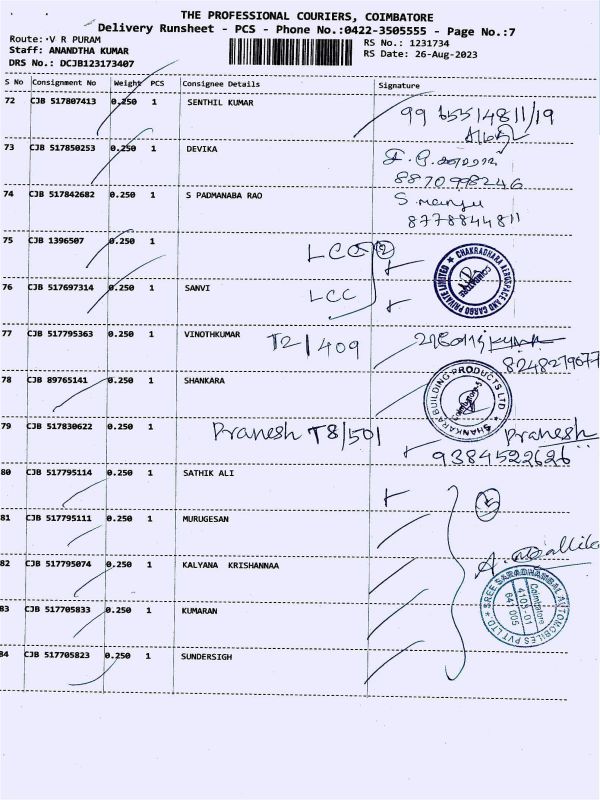 THE PROFESSIONAL COURIERS, COIMBATORE
Delivery Runsheet - PCS - Phone No.:0422-3505555 - Page No.:7
Route: V R PURAM
RS No.: 1231734
Staff: ANANDTHA KUMAR
RS Date: 26-Aug-2023
DRS No.: DCJB123173407
S No Consignment No Weight PCS Consignee Details Signature
72 CJB 517807413 0.250 1 SENTHIL KUMAR
73 CJB 517850253 0.250 1 DEVIKA
8870998246
74 CJB 517842682 0.250 1 S PADMANABA RAO S. manju
8778844811
75 CJB 1396507 0.250 1 LCC 2
CHAKRADHARA AEROSPACE AND CARGO PRIVATE LIMITED
COIMBATORE
76 CJB 517697314 0.250 1 SANVI LCC
77 CJB 517795363 0.250 1 VINOTHKUMAR T2/409
8248279077
78 CJB 89765141 0.250 1 SHANKARA
SHANKARA BUILDING PRODUCTS LTD
79 CJB 517830622 0.250 1 Pranesh T8/501 Pranesh
9384522626
80 CJB 517795114 0.250 1 SATHIK ALI
81 CJB 517795111 0.250 1 MURUGESAN
82 CJB 517795074 0.250 1 KALYANA KRISHNANAA
SREE SARADHAMBAL AUTOMOBILES PVT LTD
Coimbatore
641 005
83 CJB 517705833 0.250 1 KUMARAN
84 CJB 517705823 0.250 1 SUNDERSIGH